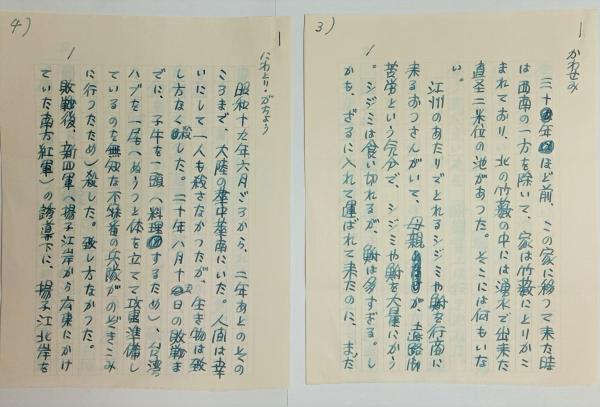 3)
かわせみ
1
三十年ほど前、この家に移って来た時
は西南の一方を除いて、家は竹藪にとりかこ
まれており、北の竹藪の中には湧水で出来た
直径二米位の池があった。そこには何もいな
い。
江州のあたりでとれるシジミや鮒を行商に
来るおっさんがいて、母親が、道路
苦労という気分で、シジミや鮒を大量にかう
。シジミは食い切れるが、鮒は多すぎる。し
かも、ざるに入れて運ばれて来たのに、まだ
4)
にわとり・がちょう
1
昭和十九年六月ごろから、二年あとのその
ころまで、大陸の華中華南にいた。人間は幸
いにして一人も殺さなかったが、生き物は致
し方なく殺した。二十年八月十日の敗戦ま
でに、子牛を一頭(料理するため)、台湾
ハブを一匹(ぬうっと体を立てて攻撃準備し
ているのを無知な不寝番の兵隊がのぞきこみ
に行ったため)殺した。致し方なかった。
敗戦後、新四軍(揚子江岸から広東にかけ
ていた南方紅軍)の誘導下に、揚子江北岸を